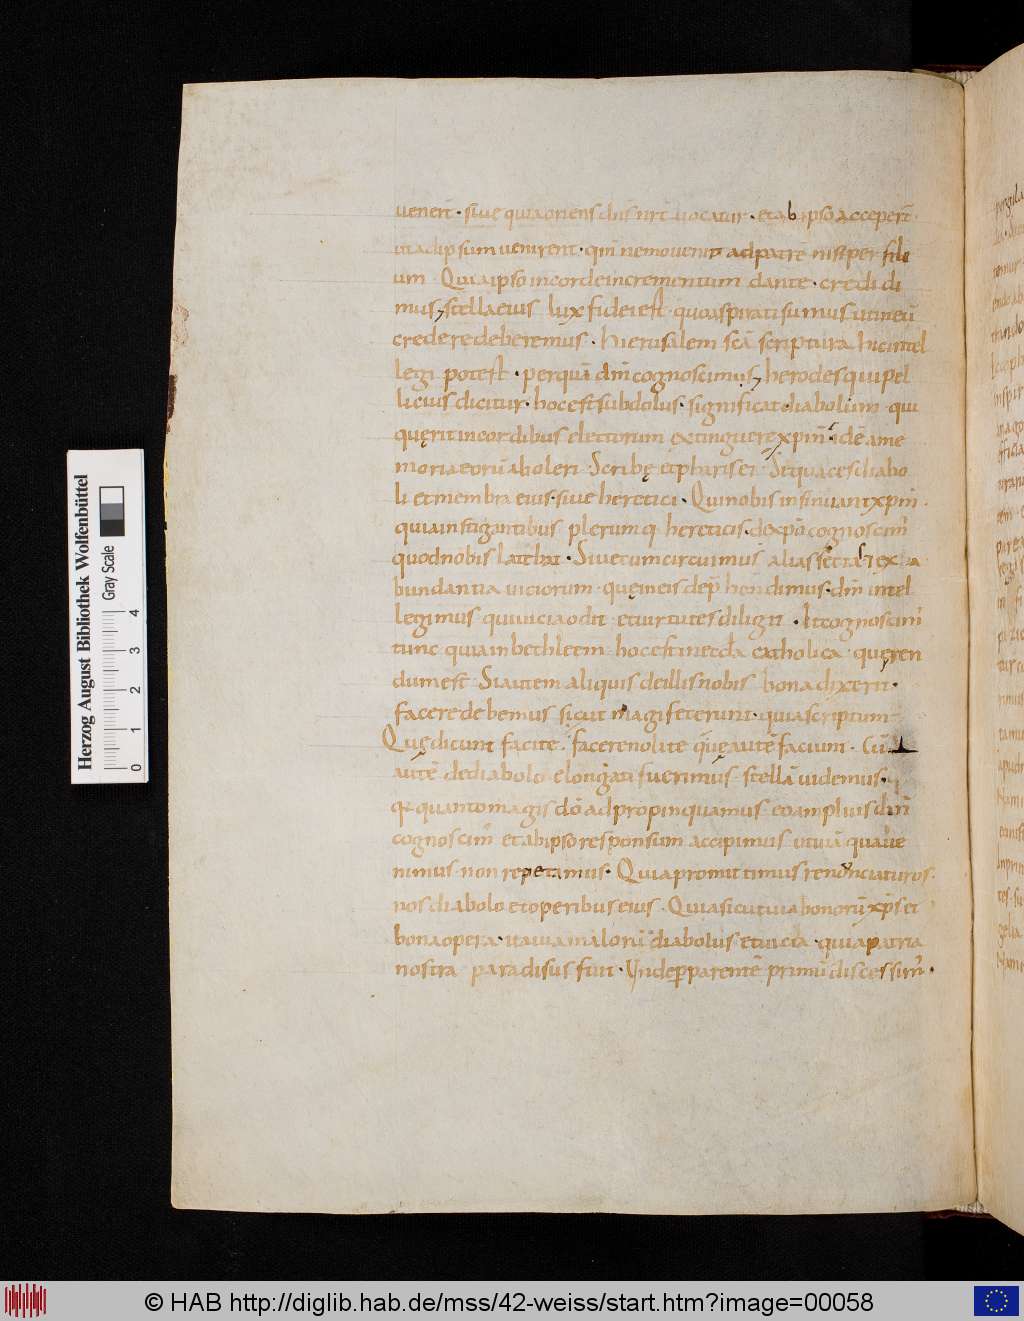 uenerit · siue quia oriens dn̄s nr̄t uocatur · et ab ipso acceper̄t ·
ut ad ipsum uenirent · qm̄ nemo uenit ad patrē nisi per fili
um · Quia ipso in corde incrementum dante · credidi
mus ⁊ stella eius lux fidei est · qua aspirati sumus ut in eū
credere deberemus · Hierusalem scā scriptura hic intel
legi potest · per quā dn̄m cognoscimus ⁊ herodes qui pel
liceius dicitur · hoc est subdolus · significat diabolum · qui
quęrit in cordibus electorum extinguere xp̄m · idē a me
moria eorū aboleri · Scribę et pharisei · Sequaces diabo
li et membra eius · siue heretici · Qui nobis insinuant xp̄m ·
quia instigantibus plerumq hereticis · de xp̄o cognoscim̄
quod nobis latebat · Siue cum circuimus alias sectas ⁊ ex ha
bundantia uiciorum · quę in eis dep̄hendimus · dn̄m intel
legimus qui uicia odit et uirtutes diligit · Et cognoscim̄
tunc quia in bethleem hoc est in ęccla catholica · quęren
dum est · Si autem aliquis de illis nobis bona dixerit ·
facere debemus sicut magi fecerunt · quia scriptum
Quę dicunt facite · facere nolite quę autē faciunt · Cū
autē de diabolo elongati fuerimus · stellā uidemus ·
q̄ quanto magis dō adpropinquamus · eo amplius dn̄m
cognoscim̄ et ab ipso responsum accipimus ut uiā qua ue
nimus · non repetamus · Quia promittimus renunciaturos
nos diabolo et operibus eius · Quia sicut uia bonorū xp̄s et
bona opera · ita uia malorū diabolus et uicia · quia patria
nostra paradisus fuit · Unde p̄ parentē primū discessim̄ ·
Herzog August Bibliothek Wolfenbüttel
Gray Scale
0 1 2 3 4
© HAB http://diglib.hab.de/mss/42-weiss/start.htm?image=00058